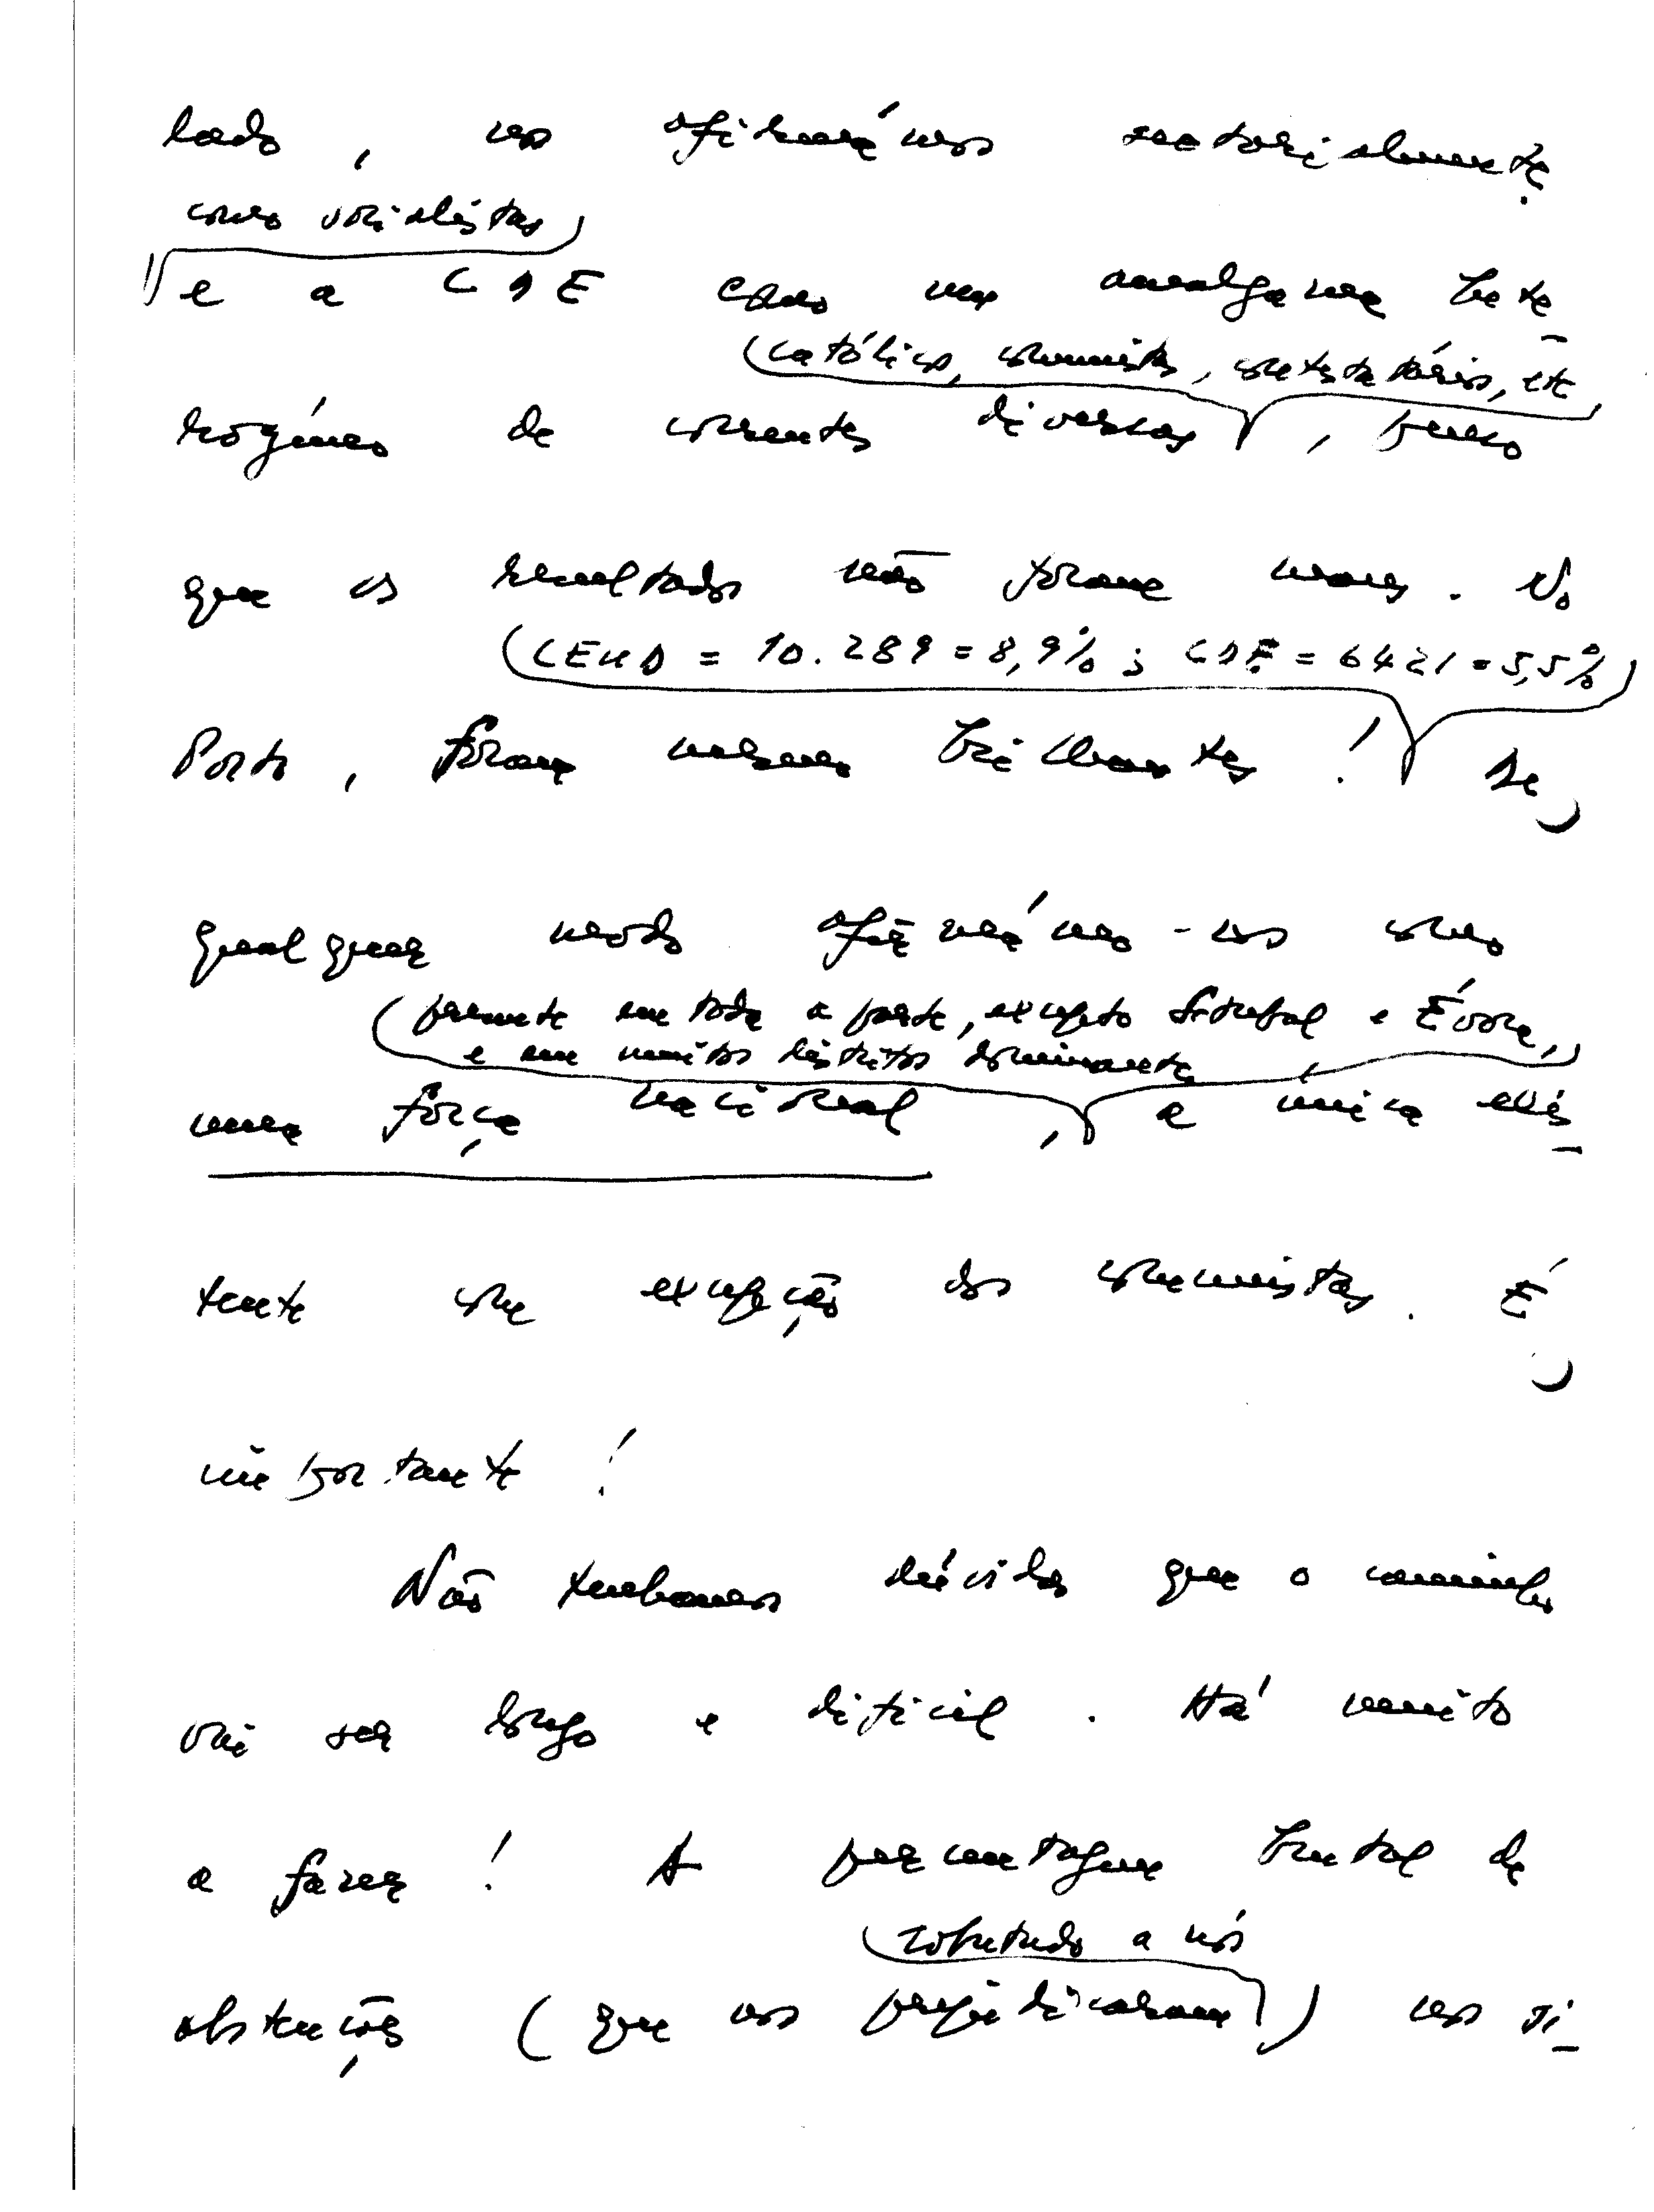 lado, nos afirmámos sectorialmente
como socialistas)
e a CDE como um amalgama hete-
(católicos, comunistas, contestatários, etc
rogéneo de correntes diversas, penso
que os resultados não foram maus. No
(CEUD = 10.289 = 8,9% ; CDE = 6421 = 5,5%)
Porto, foram mesmo brilhantes! De
qualquer modo afirmámo-nos como
(presente em toda a parte, excepto Setubal e Évora,)
e em muitos distritos dominante
uma força nacional, a única exis-
tente com excepção dos comunistas. É
importante!
Não tenhamos dúvidas que o caminho
vai ser longo e difícil. Há muito
a fazer! A percentagem brutal de
sobretudo a nós
abstenções (que nos prejudicaram) nos si-